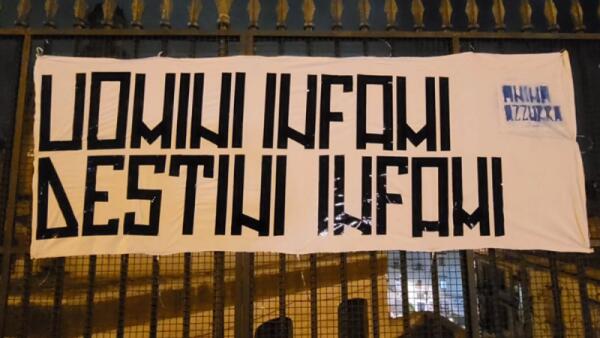 UOMINI INFAMI
DESTINI INFAMI
ANIMA
AZZURRA